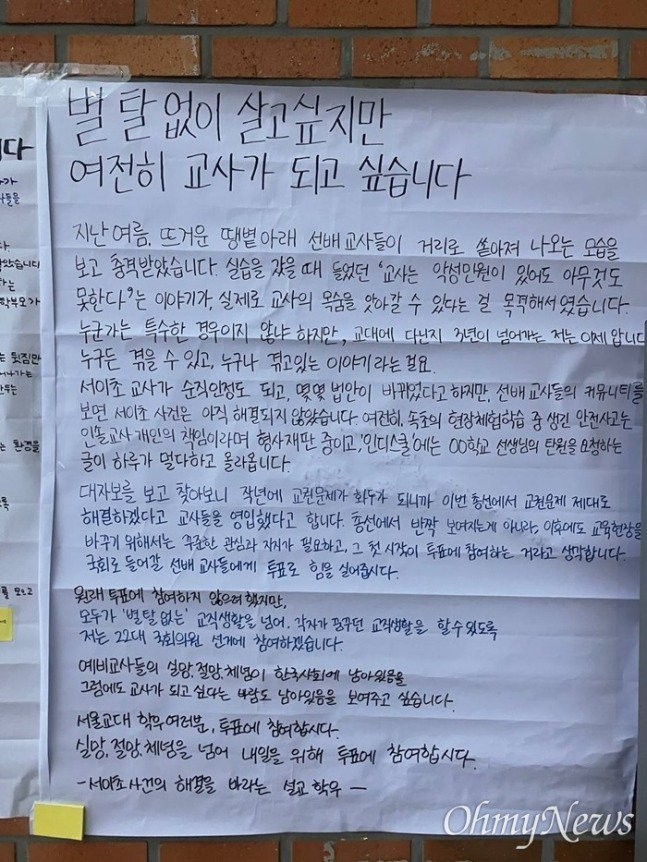 별 탈 없이 살고싶지만
여전히 교사가 되고 싶습니다
지난 여름, 뜨거운 땡볕 아래 선배교사들이 거리로 쏟아져 나오는 모습을
보고 충격받았습니다. 실습을 갔을 때 들었던 '교사는 악성민원이 있어도 아무것도
못한다'는 이야기가, 실제로 교사의 목숨을 앗아갈 수 있다는 걸 목격해서였습니다.
누군가는 특수한 경우이지 않냐 하지만, 교대에 다닌지 3년이 넘어가는 저는 이제 압니다
누구든 겪을 수 있고, 누구나 겪고있는 이야기라는 걸요.
서이초 교사가 순직인정도 되고, 몇몇 법안이 바뀌었다고 하지만, 선배 교사들의 커뮤니티를
보면 서이초 사건은 아직 해결되지 않았습니다. 여전히, 속초의 현장체험학습 중 생긴 안전사고는
인솔교사 개인의 책임이라며 형사재판 중이고, '인디스쿨'에는 OO학교 선생님의 탄원을 요청하는
글이 하루가 멀다하고 올라옵니다.
대자보를 보고 찾아보니 작년에 교권문제가 화두가 되니까 이번 총선에서 교권문제 제대로
해결하겠다고 교사들을 영입했다고 합니다. 총선에서 반짝 보여지는게 아니라, 이후에도 교육현장을
바꾸기 위해서는 꾸준한 관심과 지지가 필요하고, 그 첫 시작이 투표에 참여하는 거라고 생각합니다.
국회로 들어갈 선배 교사들에게 투표로 힘을 실어줍시다.
원래 투표에 참여하지 않으려 했지만,
모두가 '별탈 없는' 교직생활을 넘어, 각자가 꿈꾸던 교직생활을 할 수 있도록
저는 22대 국회의원 선거에 참여하겠습니다.
예비교사들의 실망, 절망, 체념이 한국사회에 남아있음을
그럼에도 교사가 되고 싶다는 바람도 남아있음을 보여주고 싶습니다.
서울교대 학우여러분, 투표에 참여합시다.
실망, 절망, 체념을 넘어 내일을 위해 투표에 참여합시다.
- 서이초 사건의 해결을 바라는 설교 학우 -
OhmyNews